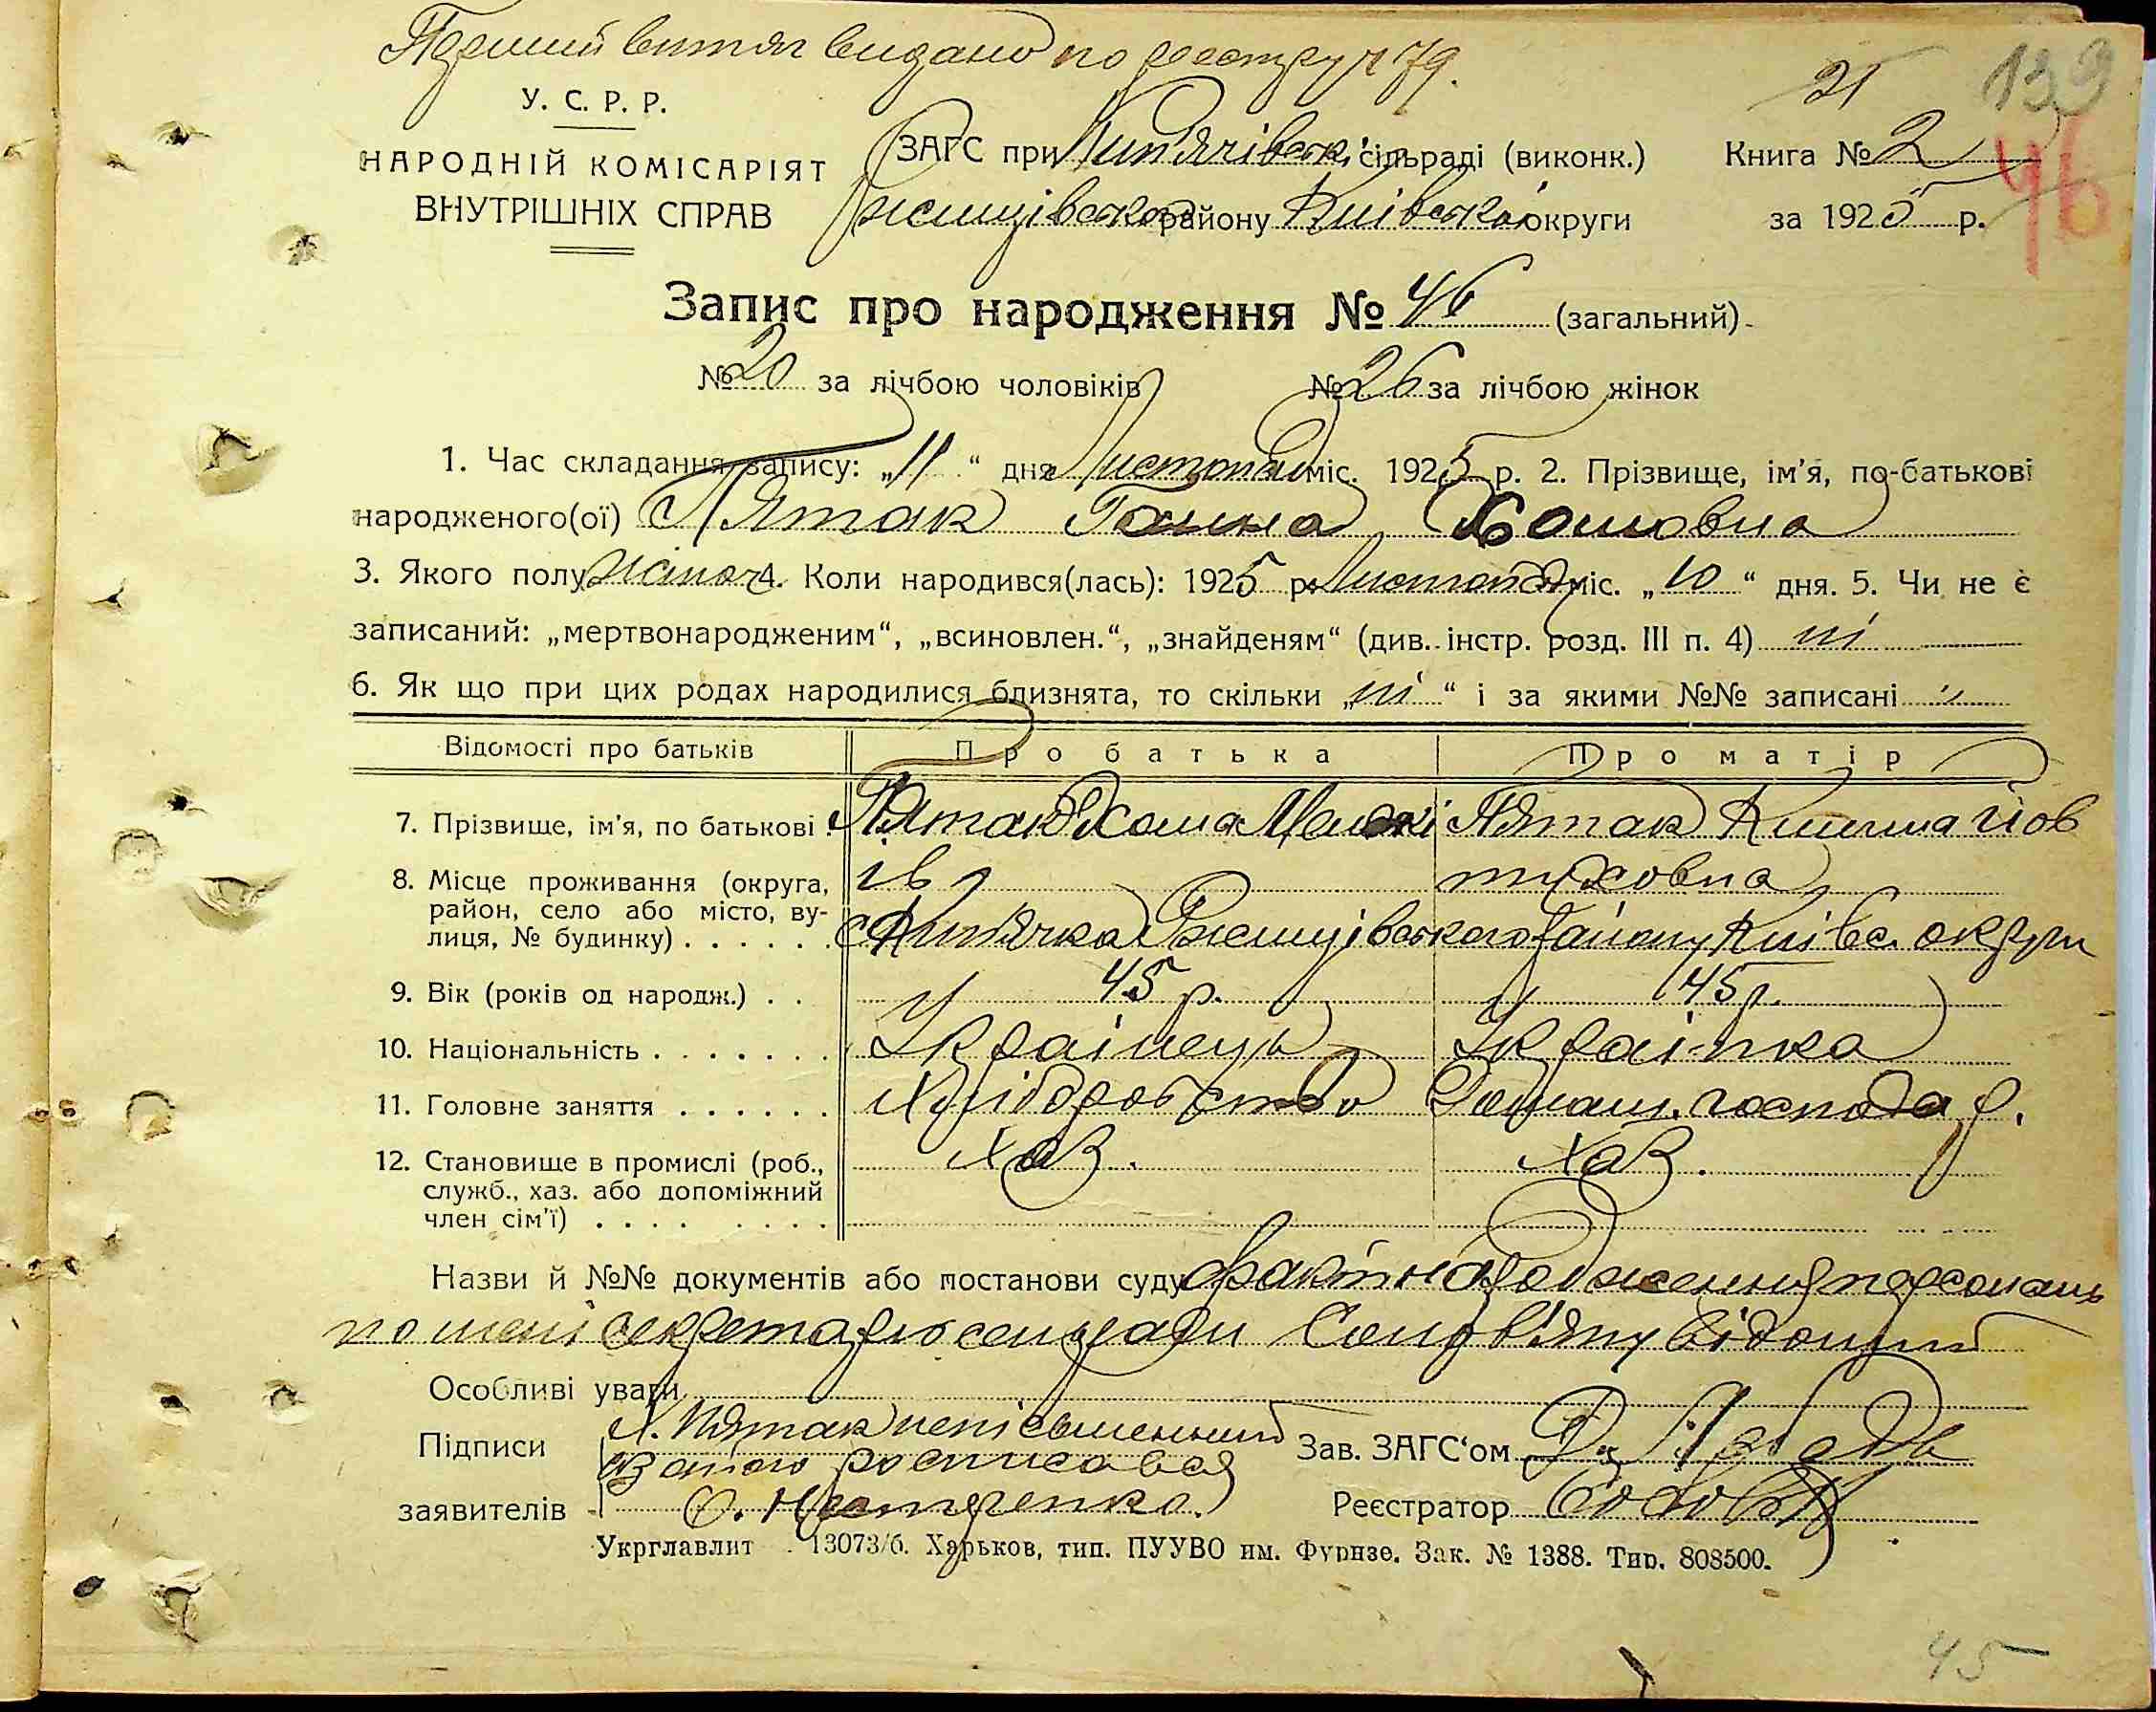 Перший витяг видано по реєстру № 79.
21
139
У. С. Р. Р.
НАРОДНІЙ КОМІСАРІЯТ
ВНУТРІШНІХ СПРАВ
ЗАГС при Кип'ячівськ. сільраді (виконк.)
Ржищівського району Київської округи
Книга № 2
за 1925 р.
46
Запис про народження № 46 (загальний)
№ 20 за лічбою чоловіків № 26 за лічбою жінок
1. Час складання запису: „11“ дня Листопада міс. 1925 р. 2. Прізвище, ім'я, по-батькові
народженого(ої) Пятак Ганна Хомовна
3. Якого полу жіноч. 4. Коли народився(лась): 1925 р. Листопада міс. „10“ дня. 5. Чи не є
записаний: „мертвонародженим“, „всиновлен.“, „знайденям“ (див. інстр. розд. III п. 4) ні
6. Як що при цих родах народилися близнята, то скільки „ні“ і за якими №№ записані "
Відомості про батьків Про батька Про матір
7. Прізвище, ім'я, по батькові Пятак Хома Пятак Йов
ів туховна
8. Місце проживання (округа,
район, село або місто, ву-
лиця, № будинку) . . . . . . с. Кип'ячка Ржищівського Району Київс. округи
9. Вік (років од народж.) . . 45 р. 45 р.
10. Національність . . . . . . . Українець Українка
11. Головне заняття . . . . . . Хліборобство Домаш. господар.
12. Становище в промислі (роб.,
служб., хаз. або допоміжний
член сім'ї) . . . . . . . . Хаз. Хаз.
Назви й №№ документів або постанови суду факт народження персонань
но мені секретарю сельради відомий
Особливі уваги
Підписи Х. Пятак неписьменний Зав. ЗАГС'ом
за нього росписався
заявителів О. Реєстратор
Укрглавлит 13073/б. Харьков, тип. ПУУВО им. Фрунзе. Зак. № 1388. Тир. 808500.
45